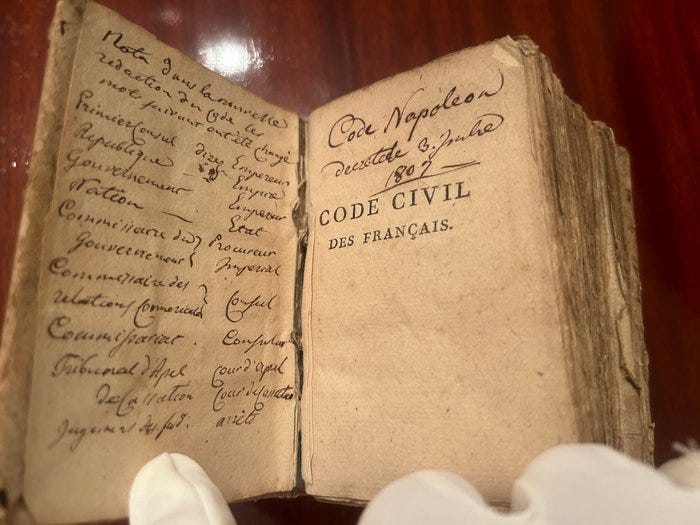 Nota Dans la nouvelle
redaction du Code les
mots suivant ont été changé
Premier Consul Empereur
Republique — Empire
Gouvernement Empereur
Nation — Etat
Commissaire du } Procureur
Gouvernement } Imperial
Commissaire des }
relations Commerciales } Consul
Commissariat . Consulat
Tribunal d'Apel Cour d'apel
de Cassation Cour de Cassation
Jugement arrêts
Code Napoléon
decret de 3.
1807 —
CODE CIVIL
DES FRANÇAIS.